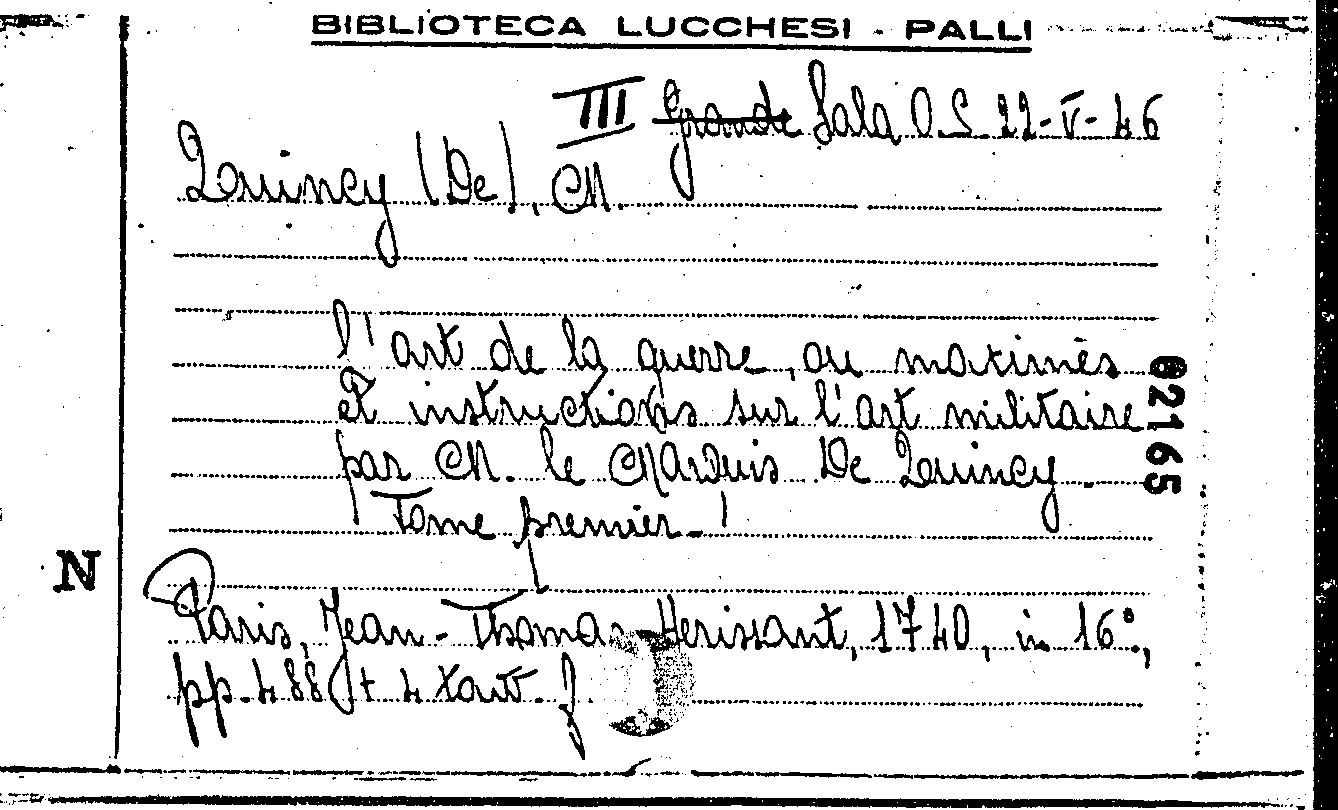 BIBLIOTECA LUCCHESI - PALLI
III Grande Sala O.S. 22-V-46
Quincy (De), M.
l'art de la guerre, ou maximes
et instructions sur l'art militaire
par M. le Marquis De Quincy.
Tome premier.
02165
N
Paris, Jean-Thomas Herissant, 1740, in 16°,
pp. 488 + 4 tav. f.